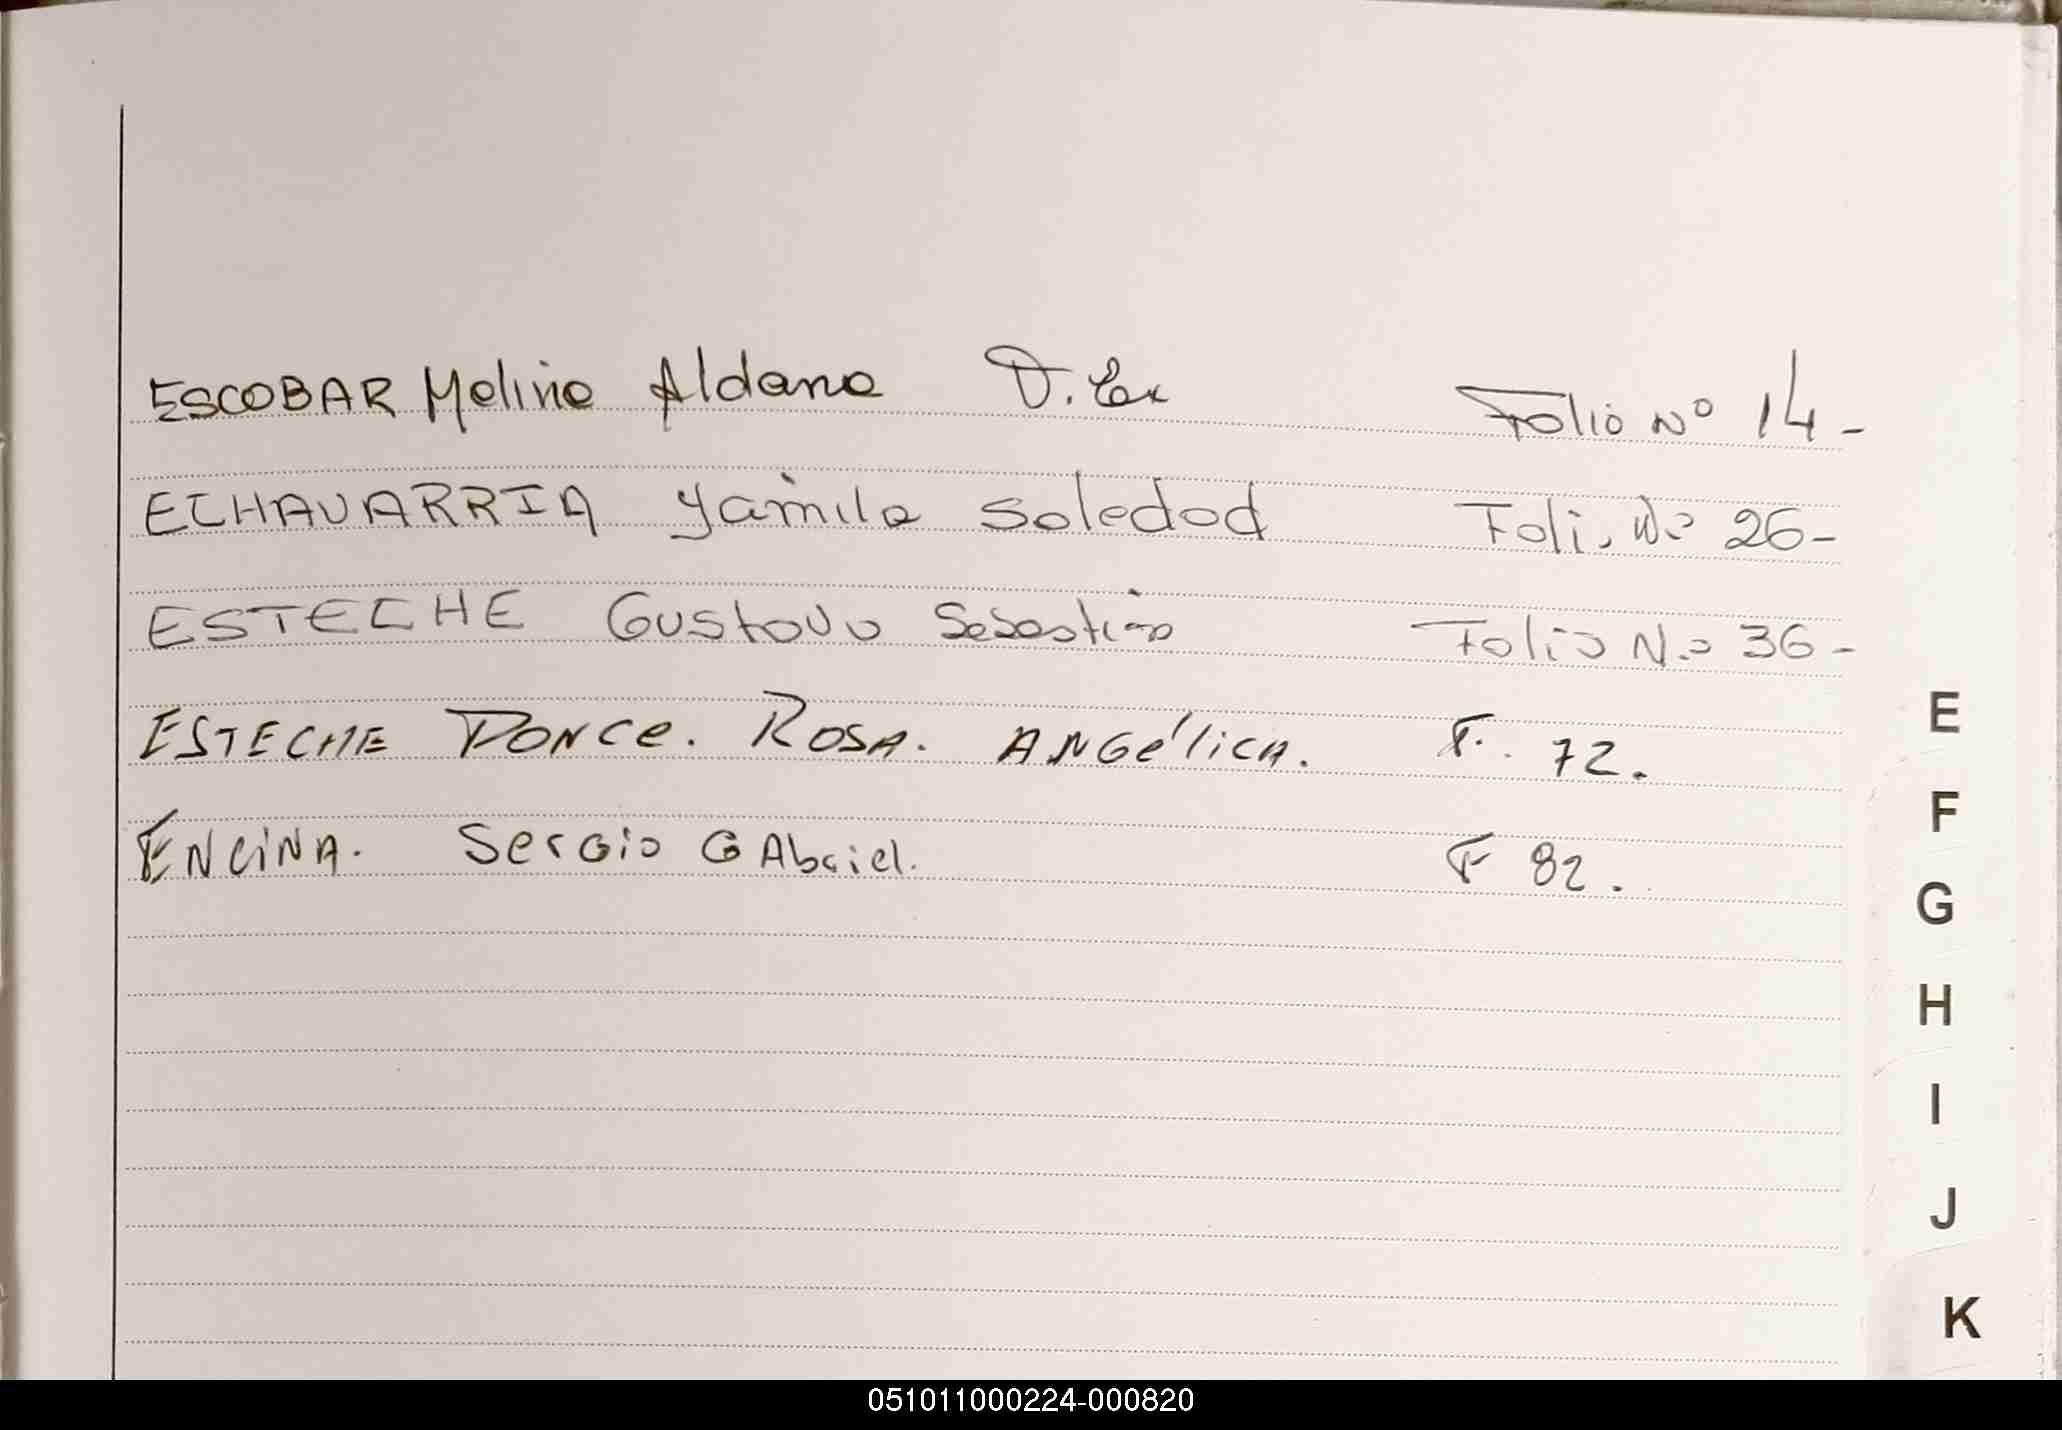 ESCOBAR Melina Aldana Folio Nº 14-
ECHAVARRIA Yamila Soledad Folio Nº 26-
ESTECHE Gustavo Sebastian Folio Nº 36-
ESTECHE PONCE. ROSA. ANGélica. F. 72.
ENCINA. Sergio GAbriel. F 82.
E
F
G
H
I
J
K
051011000224-000820